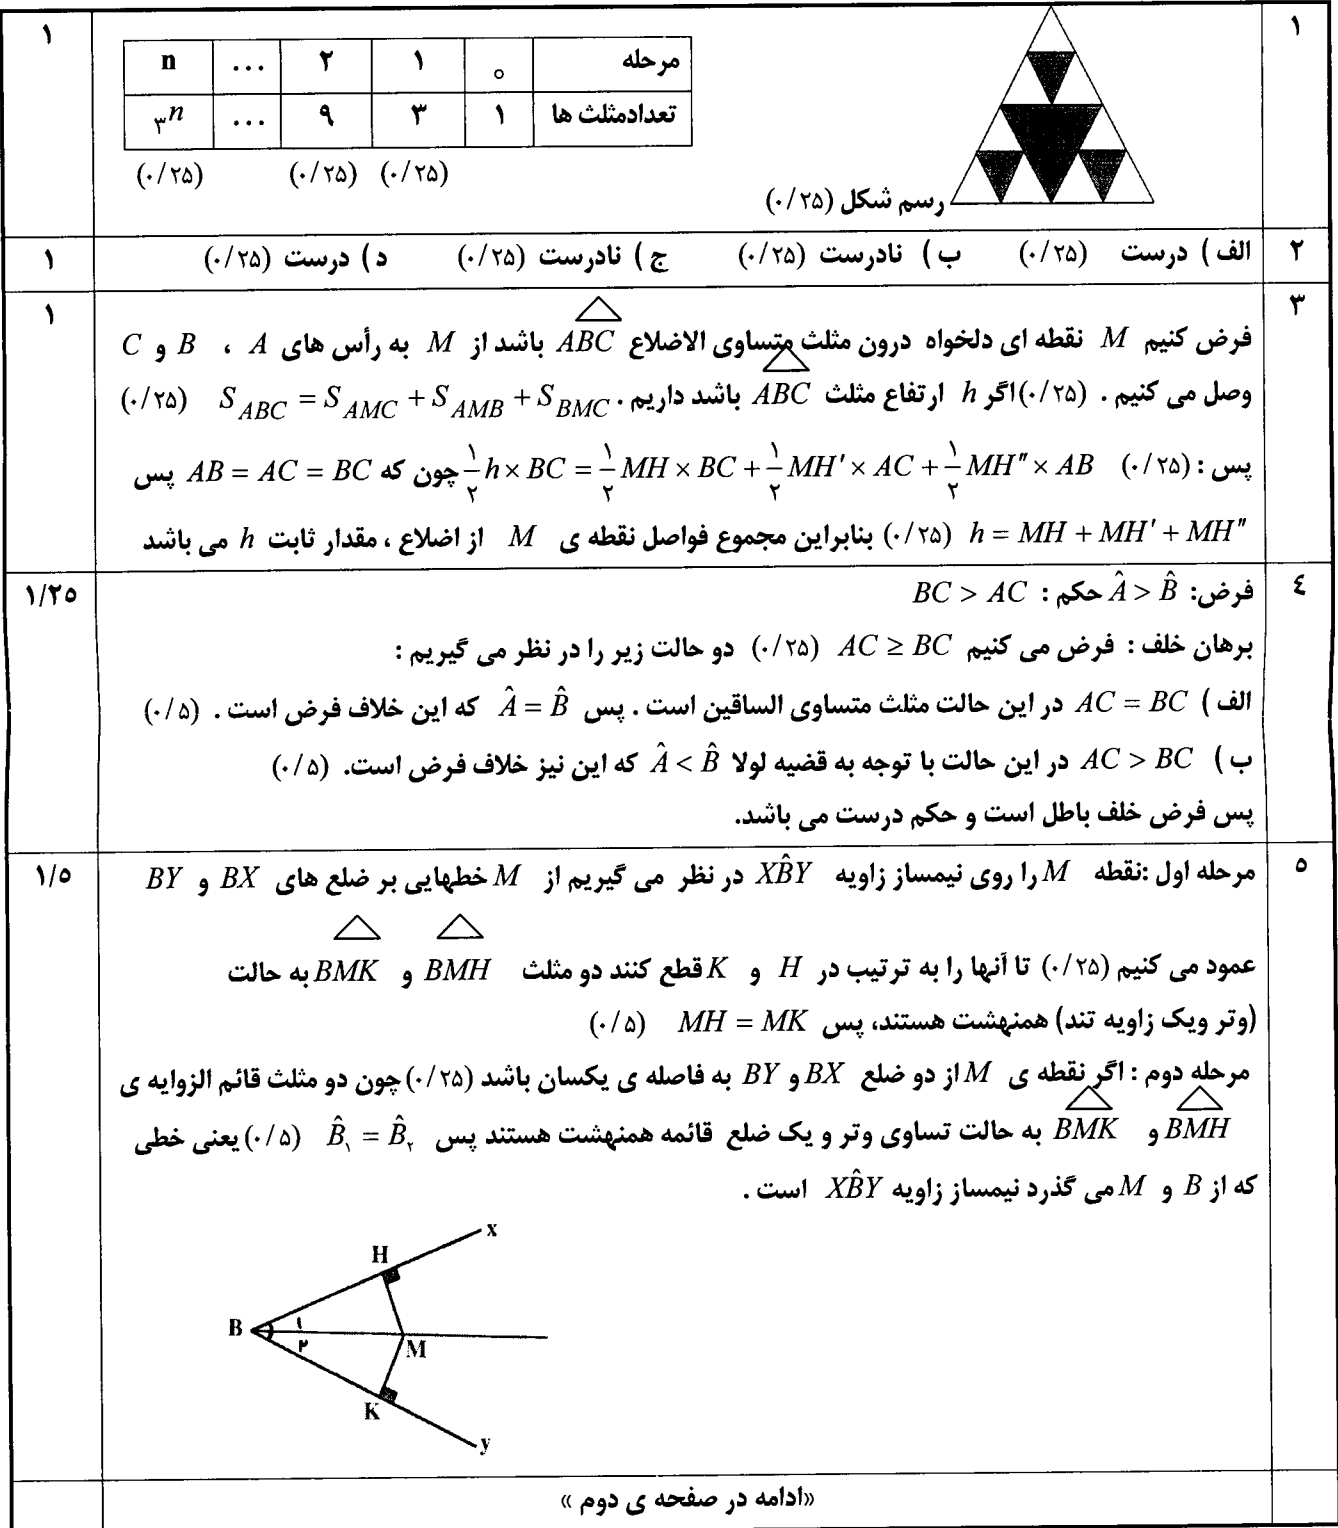 ۱
۱
مرحله ۰ ۱ ۲ ... n
تعدادمثلث ها ۱ ۳ ۹ ... ۳^n
(۰/۲۵) (۰/۲۵) (۰/۲۵)
رسم شکل (۰/۲۵)
۲ الف ) درست (۰/۲۵) ب ) نادرست (۰/۲۵) ج ) نادرست (۰/۲۵) د ) درست (۰/۲۵) ۱
۳ فرض کنیم M نقطه ای دلخواه درون مثلث متساوی الاضلاع ABC باشد از M به رأس های A ، B و C ۱
وصل می کنیم . (۰/۲۵) اگر h ارتفاع مثلث ABC باشد داریم . S_ABC = S_AMC + S_AMB + S_BMC (۰/۲۵)
پس : (۰/۲۵) ۱/۲ h × BC = ۱/۲ MH × BC + ۱/۲ MH' × AC + ۱/۲ MH" × AB چون که AB = AC = BC پس
h = MH + MH' + MH" (۰/۲۵) بنابراین مجموع فواصل نقطه ی M از اضلاع ، مقدار ثابت h می باشد
٤ فرض: Â > B̂ حکم : BC > AC ۱/۲۵
برهان خلف : فرض می کنیم AC ≥ BC (۰/۲۵) دو حالت زیر را در نظر می گیریم :
الف ) AC = BC در این حالت مثلث متساوی الساقین است . پس Â = B̂ که این خلاف فرض است . (۰/۵)
ب ) AC > BC در این حالت با توجه به قضیه لولا Â < B̂ که این نیز خلاف فرض است. (۰/۵)
پس فرض خلف باطل است و حکم درست می باشد.
۵ مرحله اول :نقطه M را روی نیمساز زاویه XB̂Y در نظر می گیریم از M خطهایی بر ضلع های BX و BY ۱/۵
عمود می کنیم (۰/۲۵) تا آنها را به ترتیب در H و K قطع کنند دو مثلث BMH و BMK به حالت
(وتر ویک زاویه تند) همنهشت هستند، پس MH = MK (۰/۵)
مرحله دوم : اگر نقطه ی M از دو ضلع BX و BY به فاصله ی یکسان باشد (۰/۲۵) چون دو مثلث قائم الزوایه ی
BMH و BMK به حالت تساوی وتر و یک ضلع قائمه همنهشت هستند پس B̂۱ = B̂۲ (۰/۵) یعنی خطی
که از B و M می گذرد نیمساز زاویه XB̂Y است .
x
H
B
۱
۲
M
K
y
«ادامه در صفحه ی دوم »